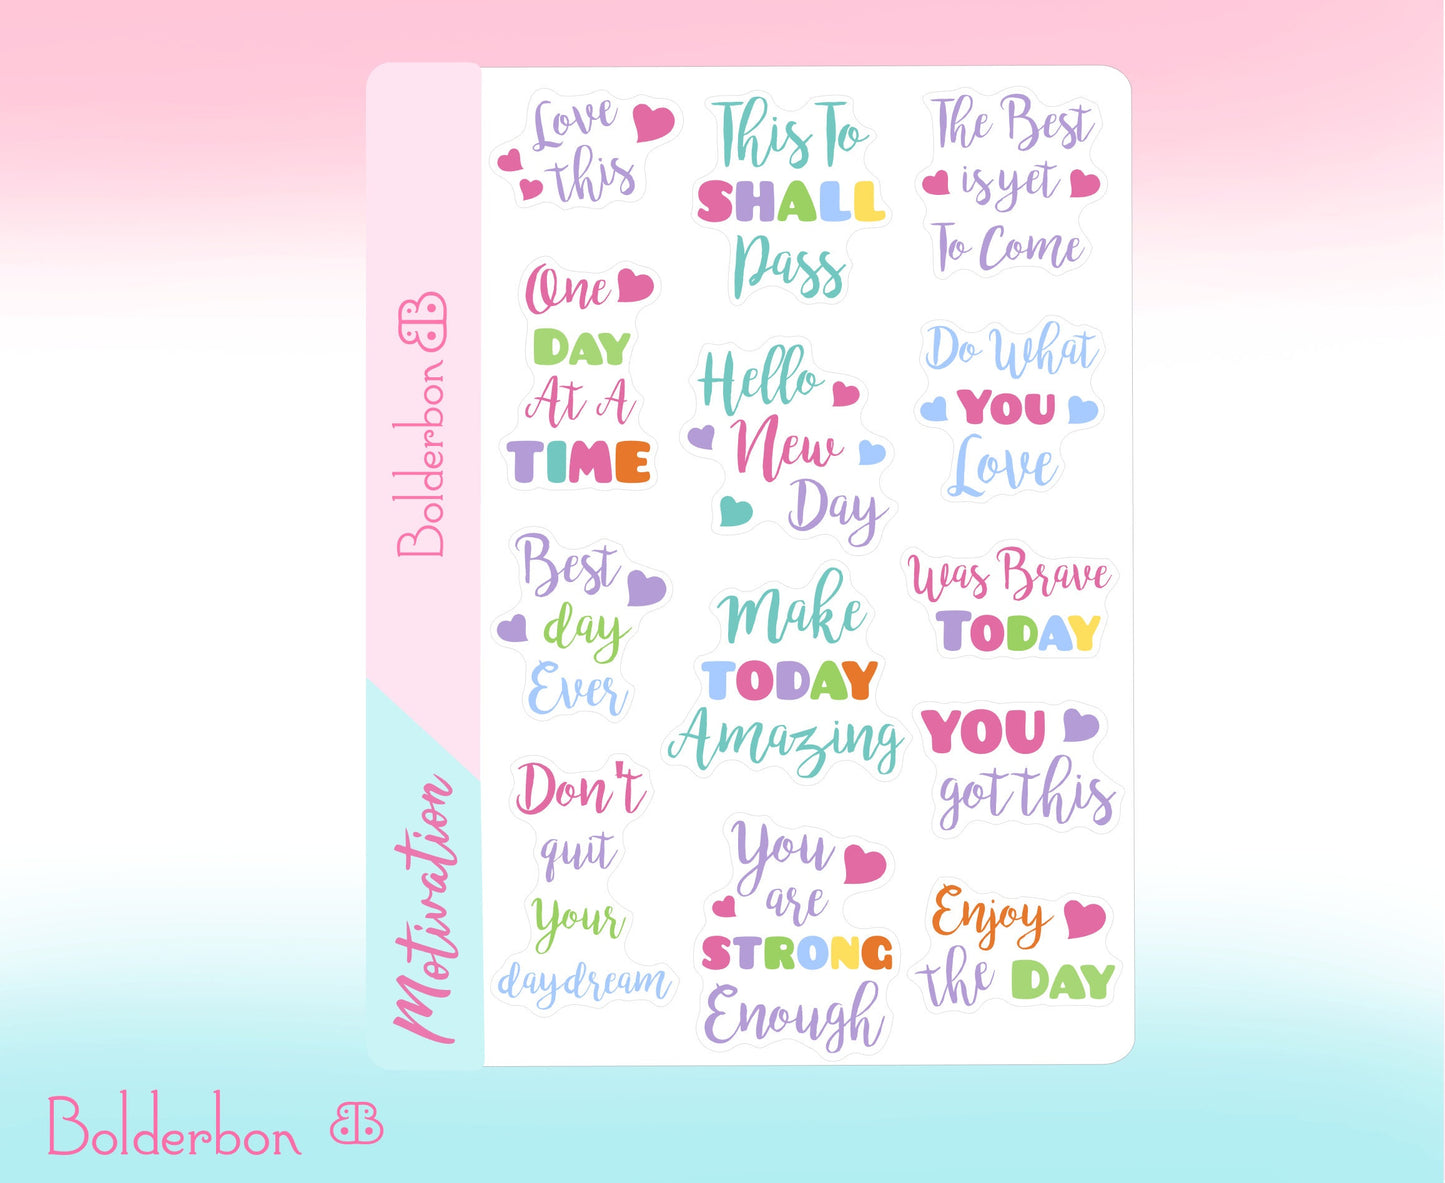 Love
this
One
DAY
At A
TIME
Best
day
Ever
Don't
quit
your
daydream
This To
SHALL
Pass
Hello
New
Day
Make
TODAY
Amazing
You
are
STRONG
Enough
The Best
is yet
To Come
Do What
YOU
Love
Was Brave
TODAY
YOU
got this
Enjoy
the DAY
Bolderbon BB
Motivation
Bolderbon BB